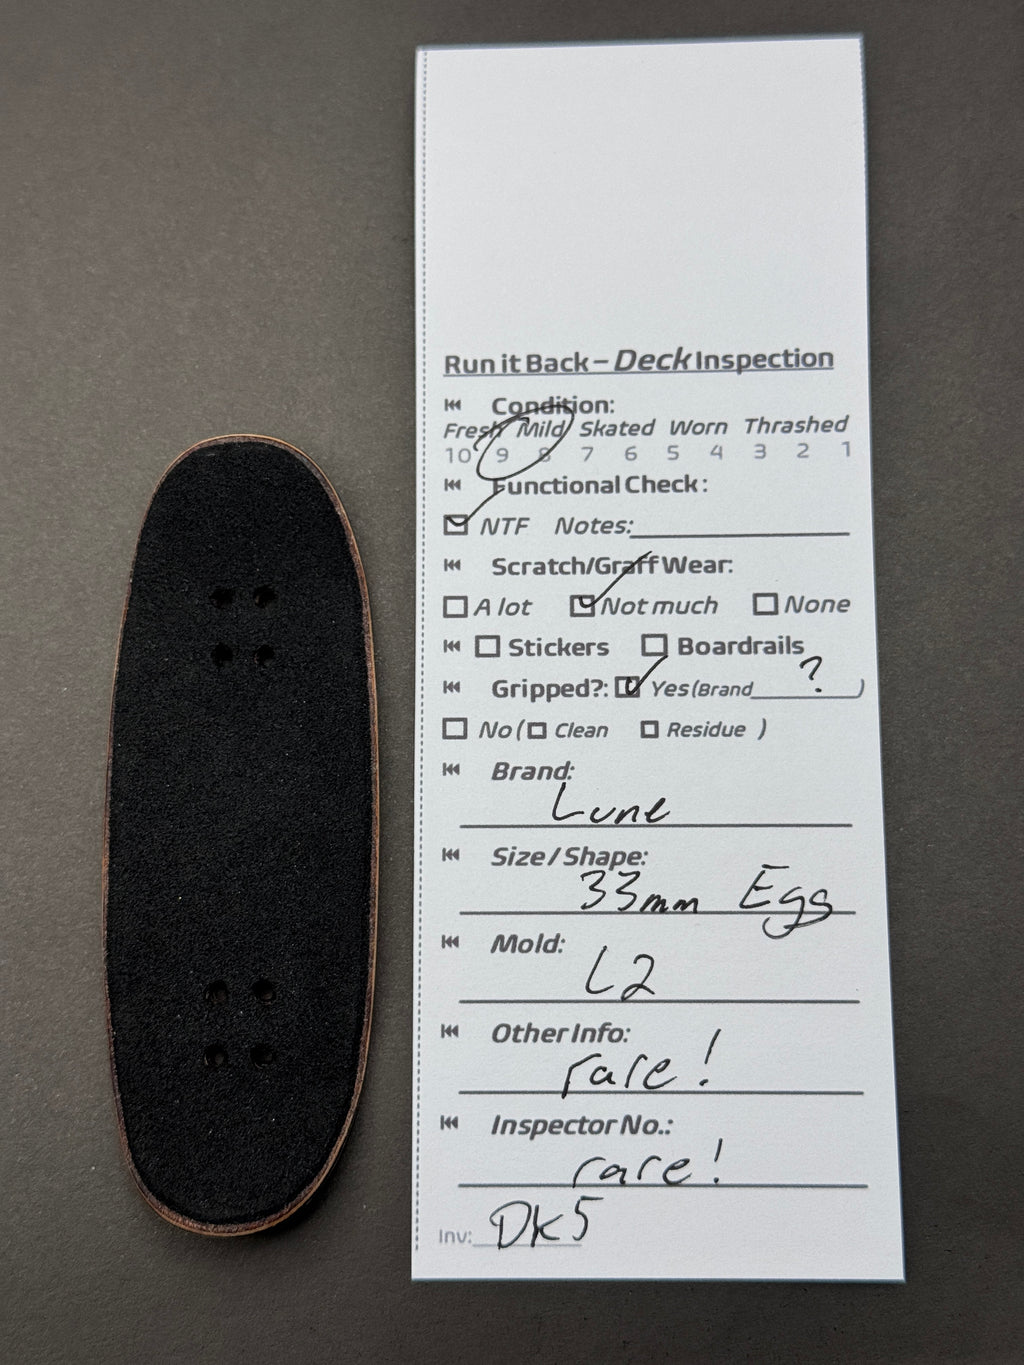 Run it Back – Deck Inspection
Condition:
Fresh Mild Skated Worn Thrashed
10 9 8 7 6 5 4 3 2 1
Functional Check:
NTF Notes:
Scratch/Graff Wear:
A lot Not much None
Stickers Boardrails
Gripped?: Yes (Brand ? )
No ( Clean Residue )
Brand:
Lune
Size / Shape:
33mm Egg
Mold:
L2
Other Info:
rare!
Inspector No.:
rare!
Inv: DK5